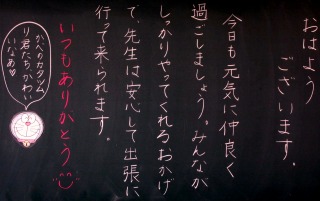 おはよう
ございます。
今日も元気に仲良く
過ごしましょう。みんなが
しっかりやってくれるおかげ
で、先生は安心して出張に
行って来られます。
いつもありがとう
かべのカタツム
リ君たちかわい
いなあ♡